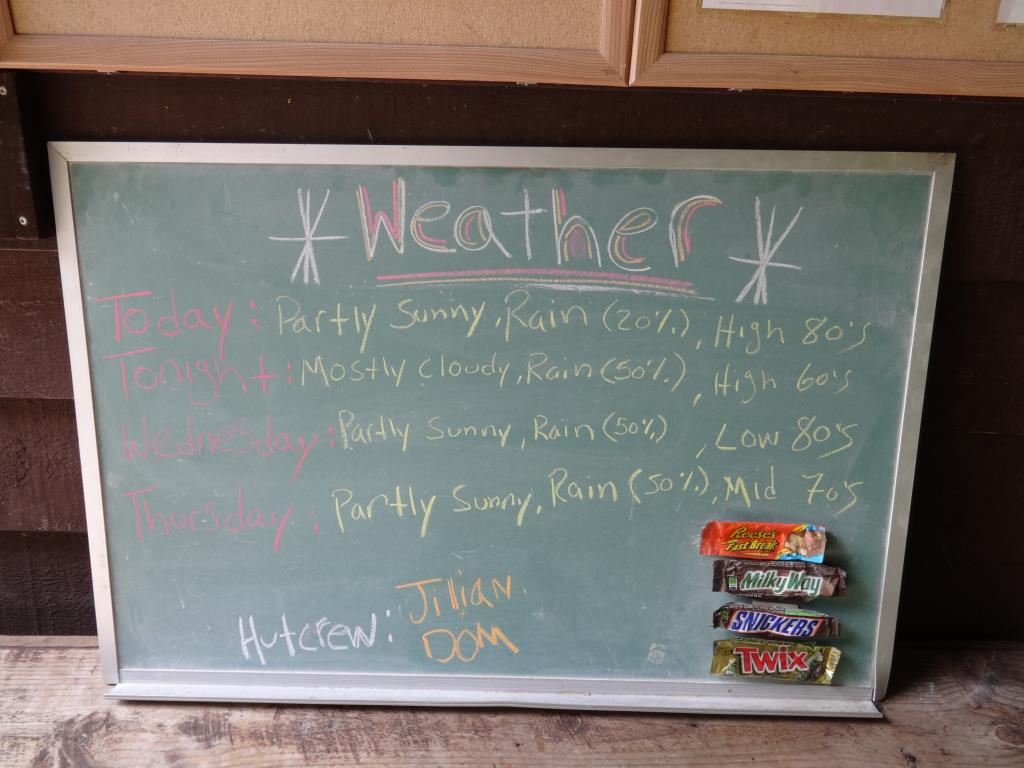 Weather
Today: Partly Sunny, Rain (20%), High 80's
Tonight: Mostly Cloudy, Rain (50%), High 60's
Wednesday: Partly Sunny, Rain (50%), Low 80's
Thursday: Partly Sunny, Rain (50%), Mid 70's
Hutcrew: Jillian
DOM
Reese's
Fast Break
Milky Way
SNICKERS
TWIX